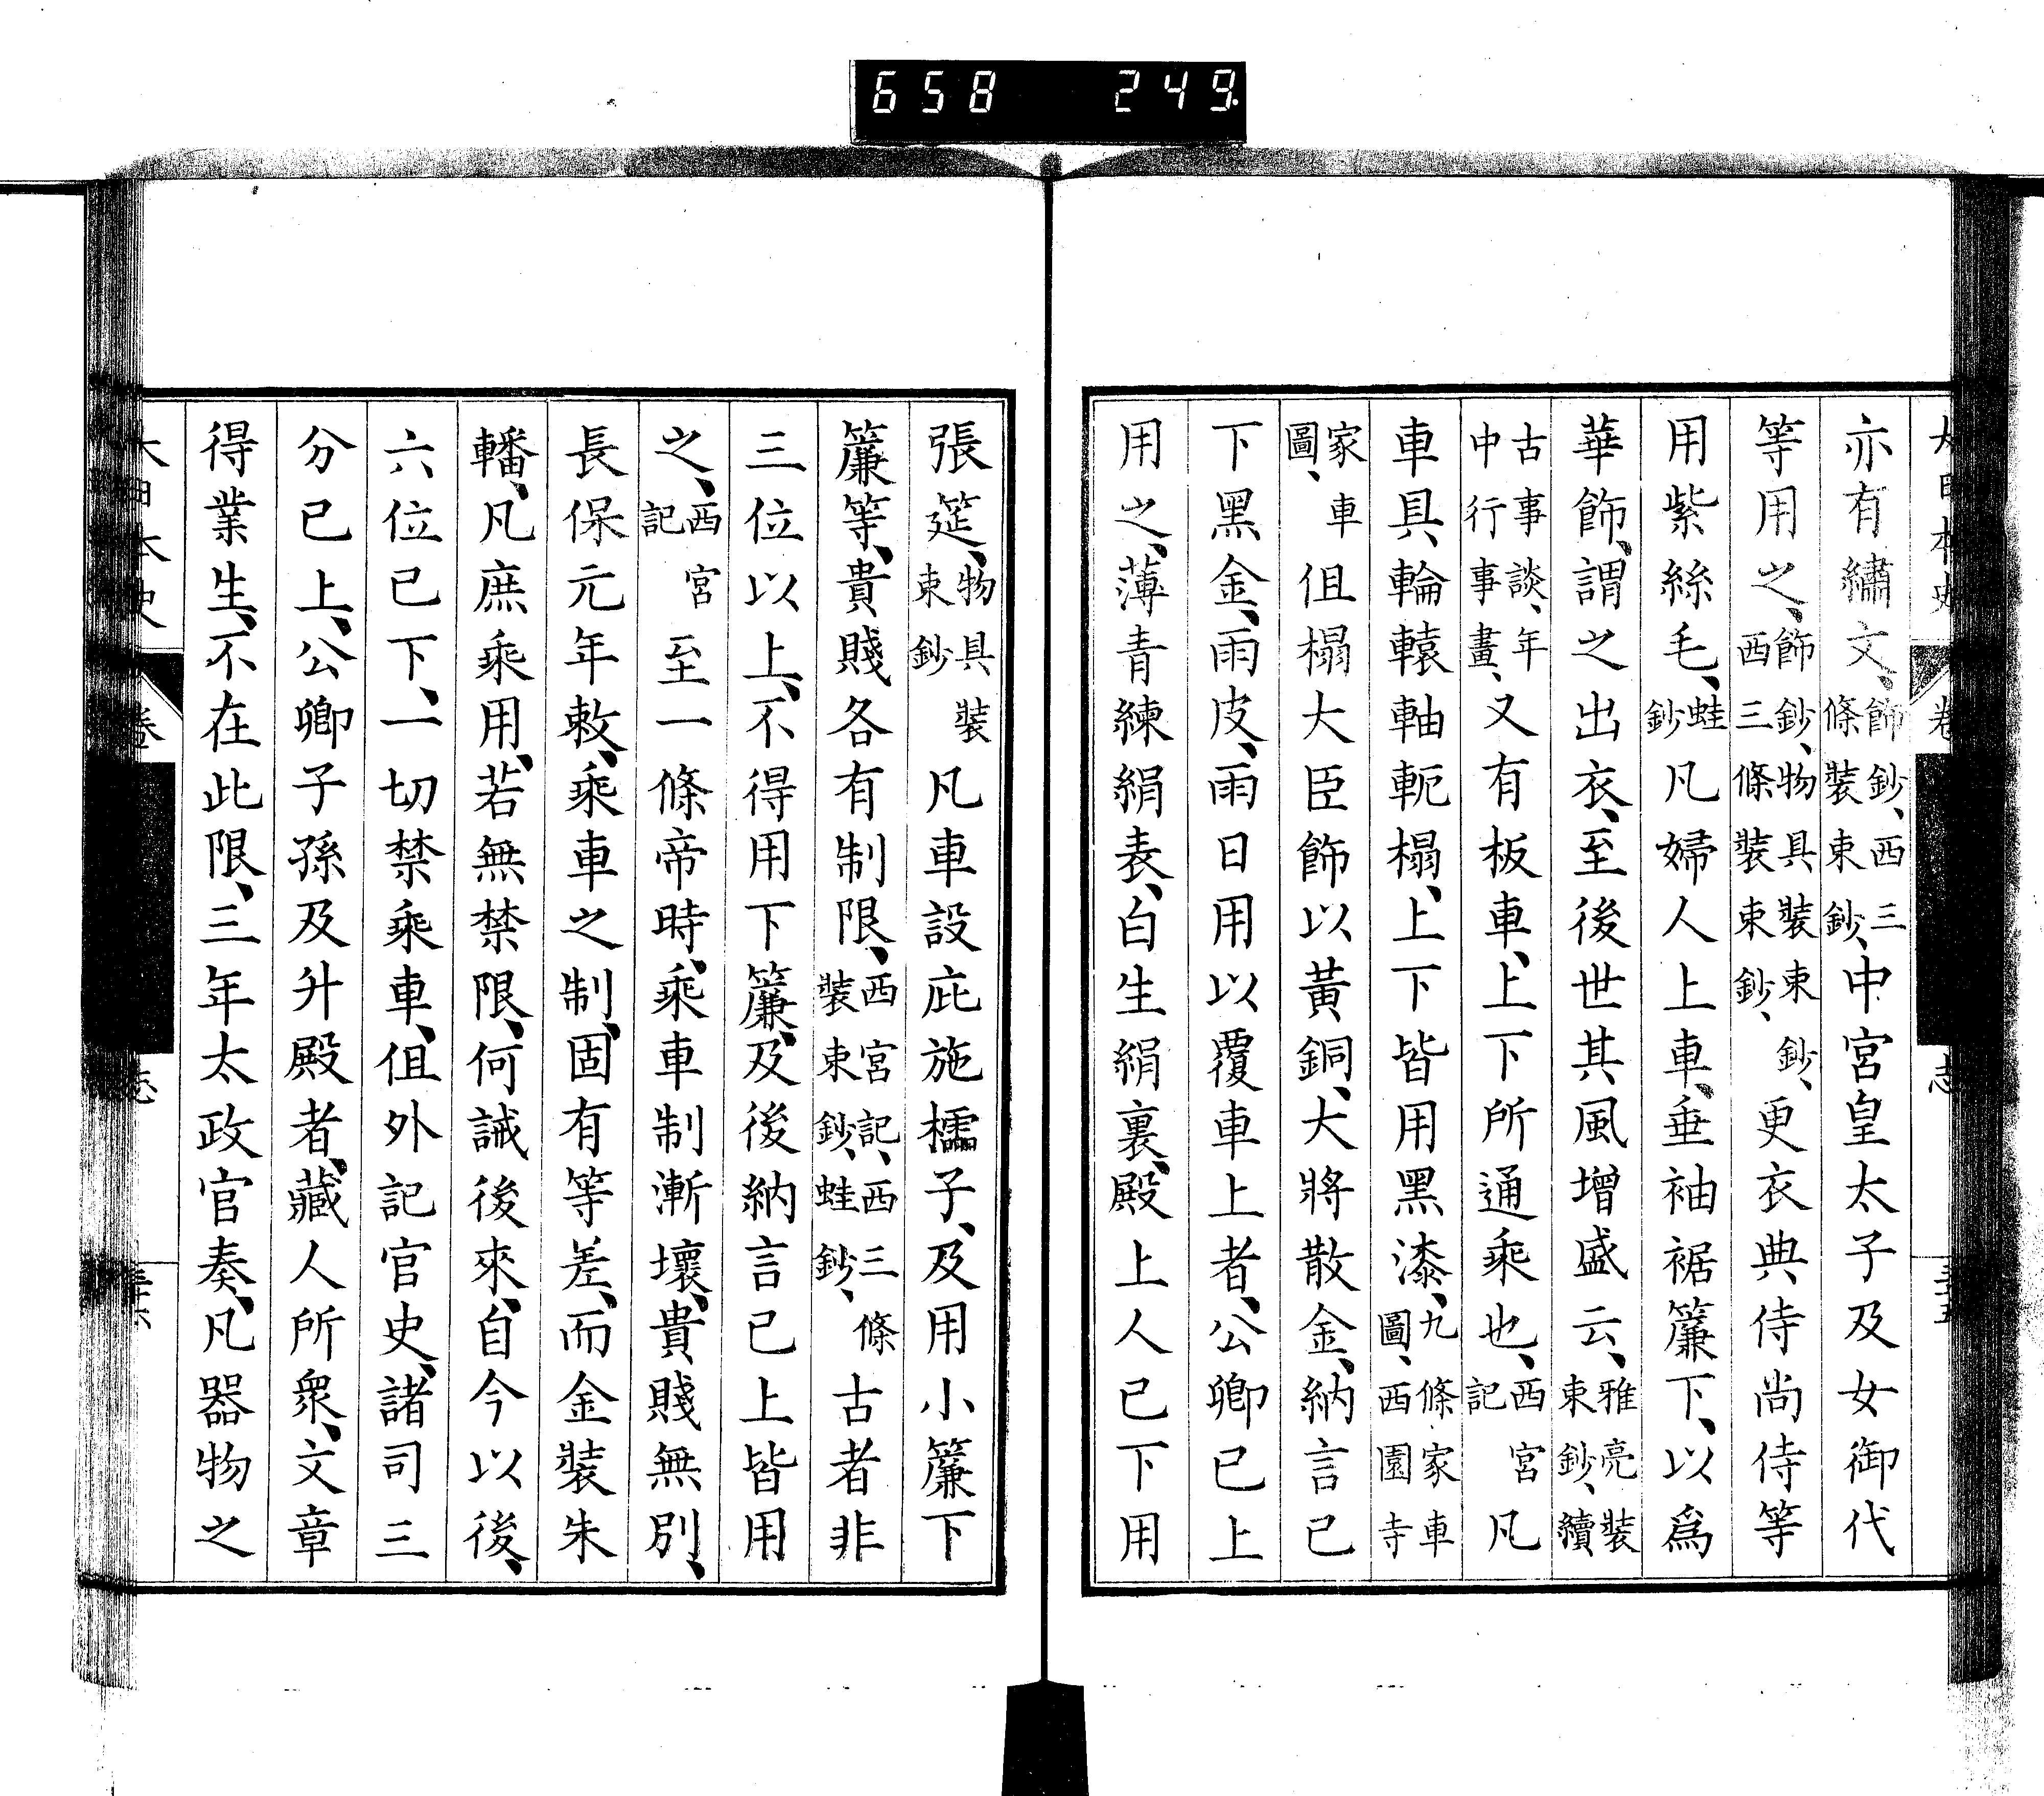 658 249
大日本史 卷 志 三十五
亦有繡文、飾鈔、西三條裝束鈔、中宮皇太子及女御代
等用之、飾鈔、物具裝束鈔、西三條裝束鈔、更衣典侍尚侍等
用紫絲毛、蛙鈔凡婦人上車、垂袖裾簾下、以爲
華飾、謂之出衣、至後世其風增盛云、雅亮裝束鈔、續
古事談、年中行事畫、又有板車、上下所通乘也、西宮記凡
車具、輪轅軸軛榻、上下皆用黑漆、九條家車圖、西園寺
家車圖、但榻大臣飾以黃銅、大將散金、納言已
下黑金、雨皮、雨日用以覆車上者、公卿已上
用之、薄青練絹表、白生絹裏、殿上人已下用
張筵、物具裝束鈔凡車設庇施檽子、及用小簾下
簾等、貴賤各有制限、西宮記、西三條裝束鈔、蛙鈔、古者非
三位以上、不得用下簾、及後納言已上皆用
之、西宮記至一條帝時、乘車制漸壞、貴賤無別、
長保元年敕、乘車之制、固有等差、而金裝朱
轓、凡庶乘用、若無禁限、何誡後來、自今以後、
六位已下、一切禁乘車、但外記官史、諸司三
分已上、公卿子孫及升殿者、藏人所衆、文章
得業生、不在此限、三年太政官奏、凡器物之
大日本史 卷 志 三十六